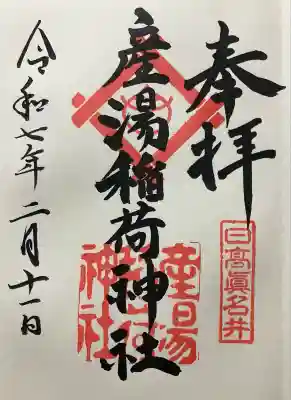 奉拝
日高眞名井
産湯稲荷神社
産湯
神社
令和七年二月十一日